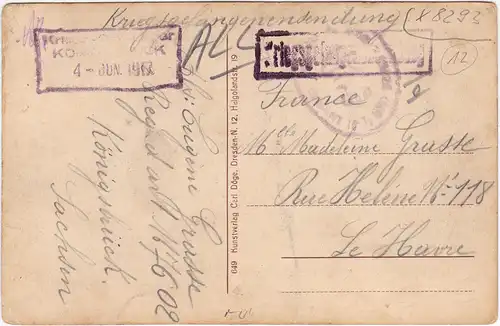 Kriegsgefangenensendung
X 8292
ALL
12
4 - JUN. 191
Kriegsgefangenensendung
France
Mlle Madeleine Grusse
Rue Hélène N° 118
Le Havre
Eugène Grusse
N° 1602
Königsbrück
Sachsen
649 Kunstverlag Carl Döge, Dresden-N. 12, Helgolandstr. 19